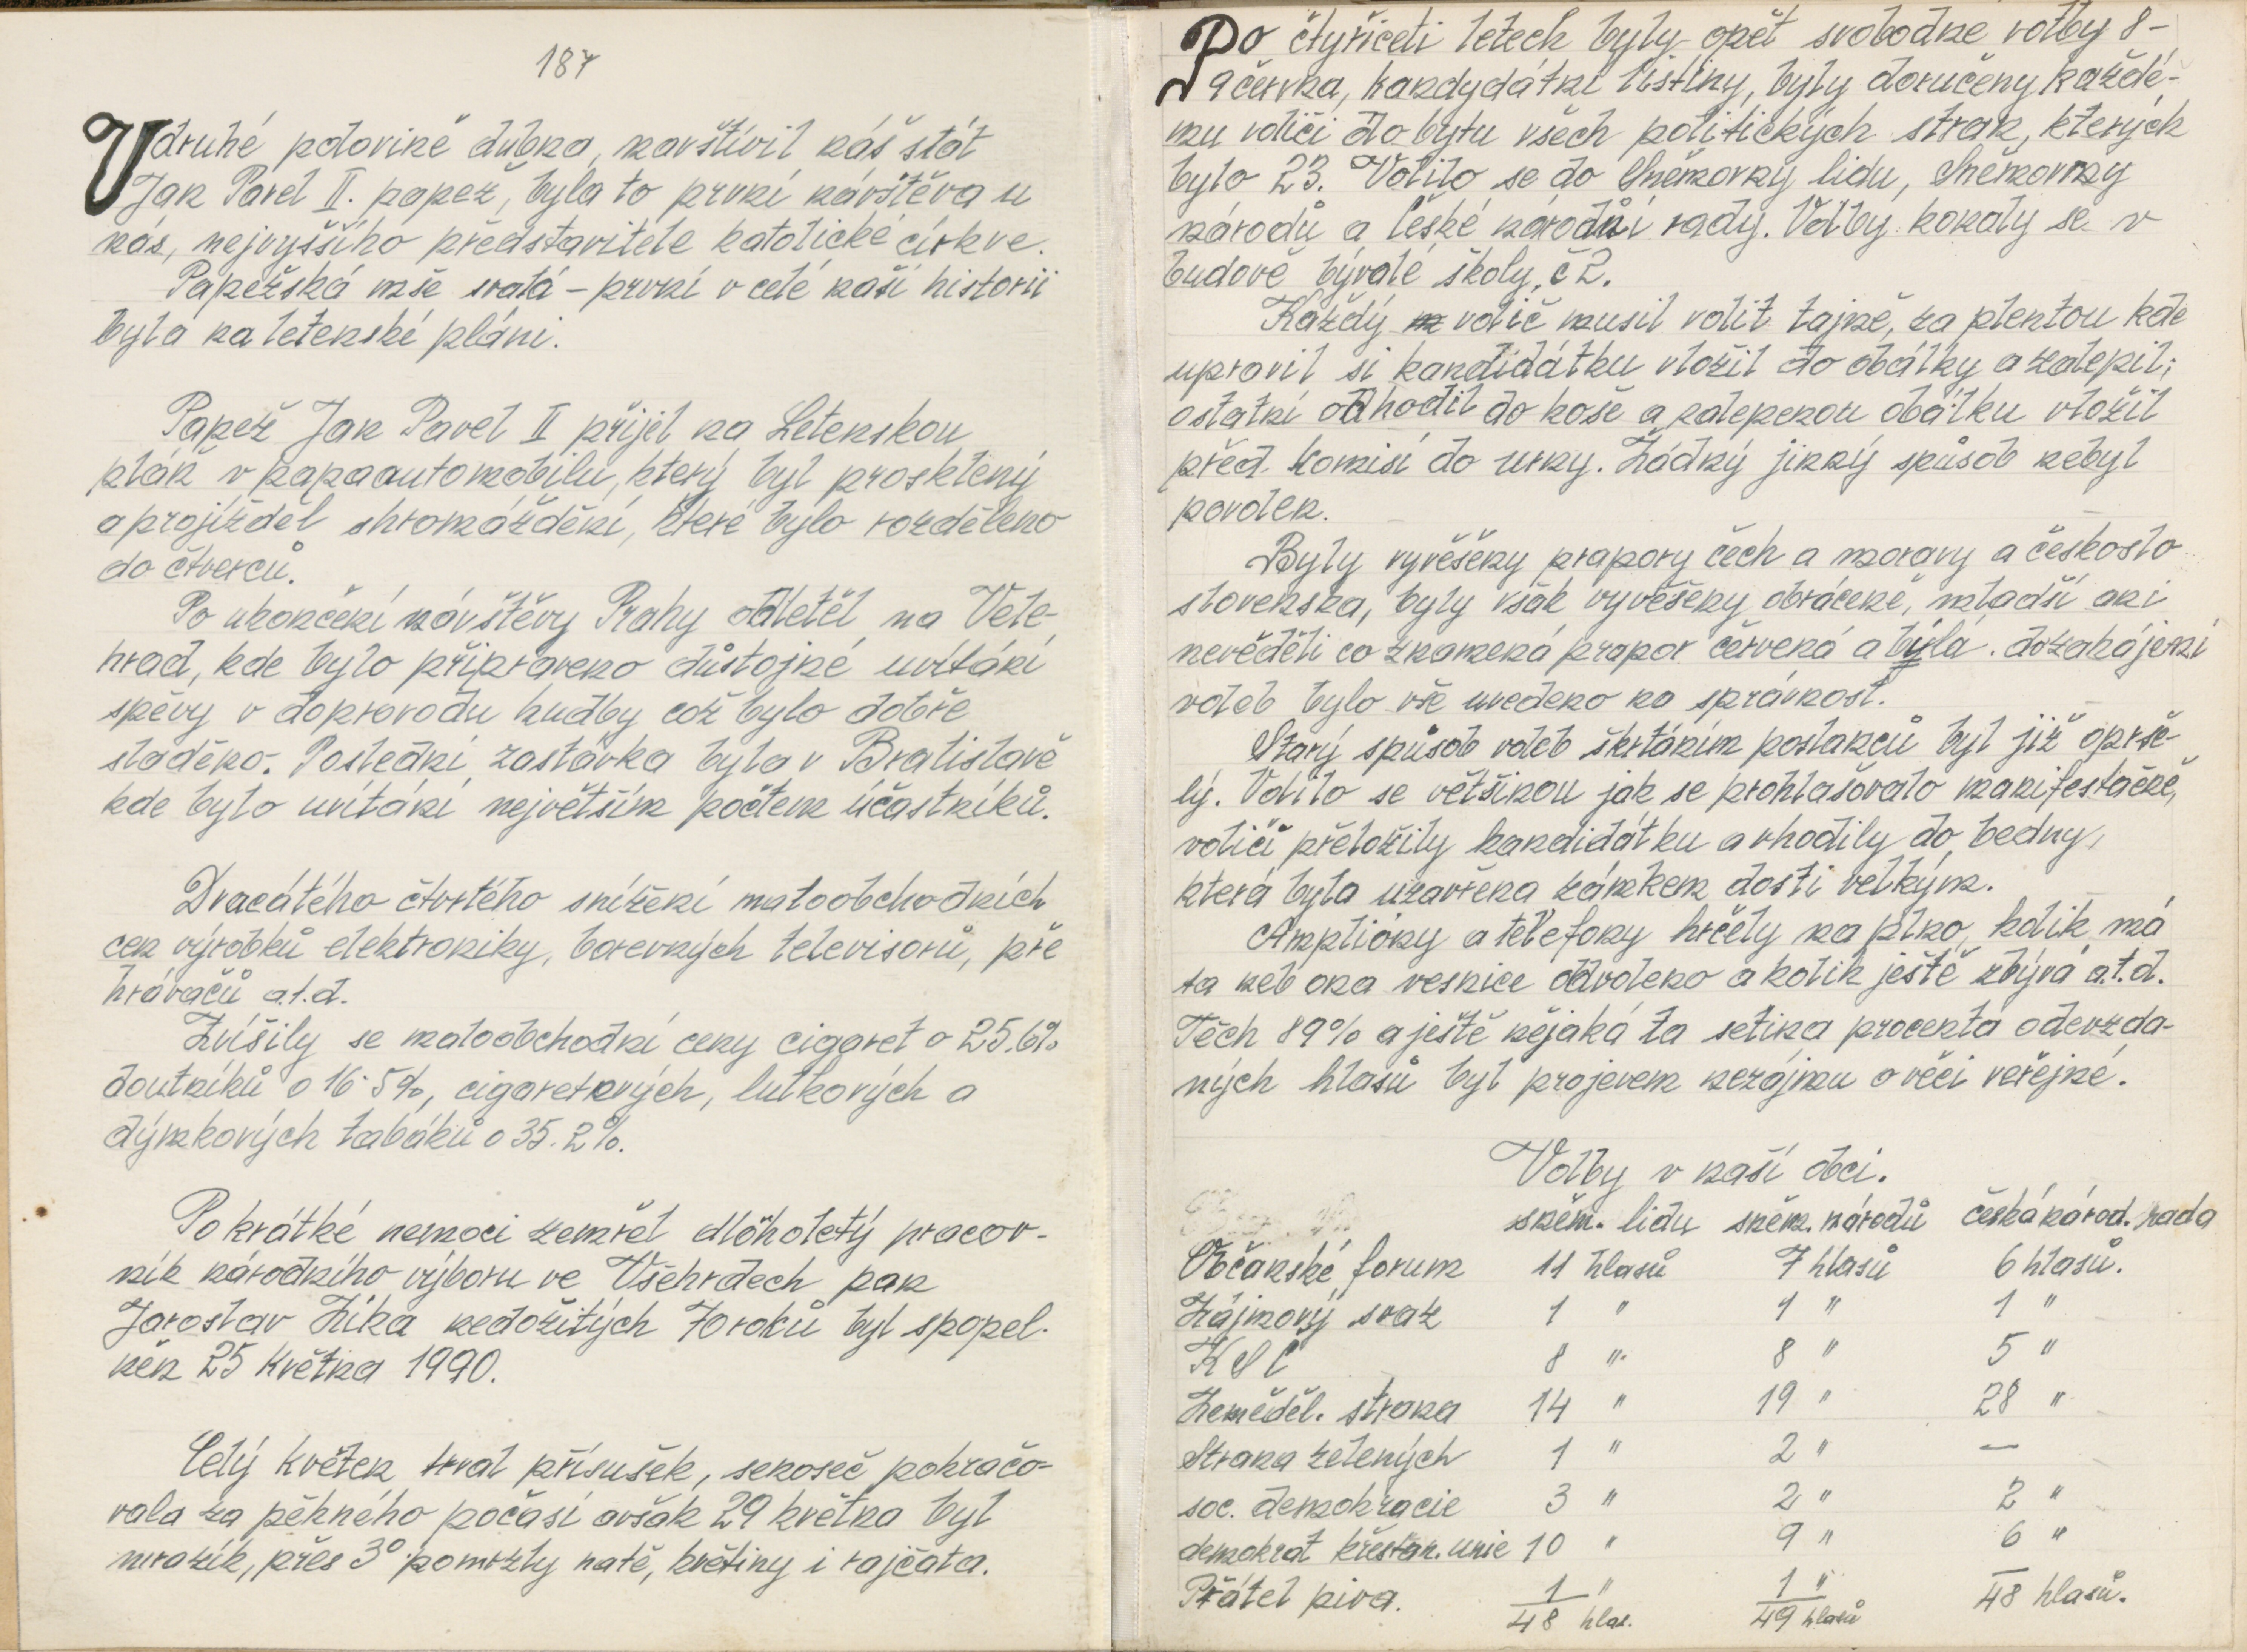 187
V druhé polovině dubna, navštívil náš stát
Jan Pavel II. papež, byla to první návštěva u
nás, nejvyššího představitele katolické církve.
Papežská mše svatá – první v celé naší historii
byla na letenské pláni.
Papež Jan Pavel II přijel na Letenskou
pláň v papaautomobilu, který byl prosklený
a projížděl shromáždění, které bylo rozděleno
do čtverců.
Po ukončení návštěvy Prahy odletěl na Vele-
hrad, kde bylo připraveno důstojné uvítání
spěvy v doprovodu hudby což bylo dobře
sladěno. Poslední zastávka byla v Bratislavě
kde bylo uvítání největším počtem účastníků.
Dvacátého čtvrtého snížení maloobchodních
cen výrobků elektroniky, barevných televisorů, pře
hrávačů a.t.d.
Zvíšily se maloobchodní ceny cigaret o 25.6%
doutníků o 16.5%, cigaretových, lulkových a
dýmkových tabáků o 35.2%.
Po krátké nemoci zemřel dlóholetý pracov-
ník národního výboru ve Všehrdech pan
Jaroslav Zíka nedožitých 70 roků byl spopel-
něn 25 Května 1990.
Celý květen trval přísušek, senoseč pokračo-
vala za pěkného počasí avšak 29 května byl
mrazík, přes 3° pomrzly natě, květiny i rajčata.
Po čtyřiceti letech byly opět svobodné volby 8-
9 června, kandydátní listiny, byly doručeny každé-
mu voliči do bytu všech politických stran, kterých
bylo 23. Volilo se do Sněmovny lidu, Sněmovny
národů a České národní rady. Volby konaly se v
budově bývalé školy, č 2.
Každý volič musil volit tajně, za plentou kde
upravil si kandidátku vložil do obálky a zalepil;
ostatní odhodil do koše a zalepenou obálku vložil
před komisí do urny. Žádný jinný spůsob nebyl
povolen.
Byly vyvěšeny prapory čech a moravy a českoslo
slovenska, byly však vyvěšeny obráceně, mladší ani
nevěděli co znamená prapor červená a býlá. do zahájení
voleb bylo vše uvedeno na správnost.
Starý spůsob voleb škrtáním poslanců byl již oprše-
lý. Volilo se většinou jak se prohlašovalo manifestačně,
voliči přeložily kandidátku a vhodily do bedny,
která byla uzavřena zámkem dosti velkým.
Ampliony a telefony hrčely na plno, kolik má
ta neb ona vesnice odvoleno a kolik ještě zbývá a.t.d.
Těch 89% a ještě nějaká ta setina procenta odevzda-
ných hlasů byl projevem nezájmu o věci veřejné.
Volby v naší obci.
sněm. lidu sněm. národů česká národ. rada
Občanské forum 11 hlasů 7 hlasů 6 hlasů.
Zájmový svaz 1 " 1 " 1 "
KSČ 8 " 8 " 5 "
Zeměděl. strana 14 " 19 " 28 "
Strana zelených 1 " 2 " —
soc. demokracie 3 " 2 " 2 "
demokrat křesťan. unie 10 " 9 " 6 "
Přátel piva. 1 " 1 " —
48 hlas. 49 hlasů 48 hlasů.